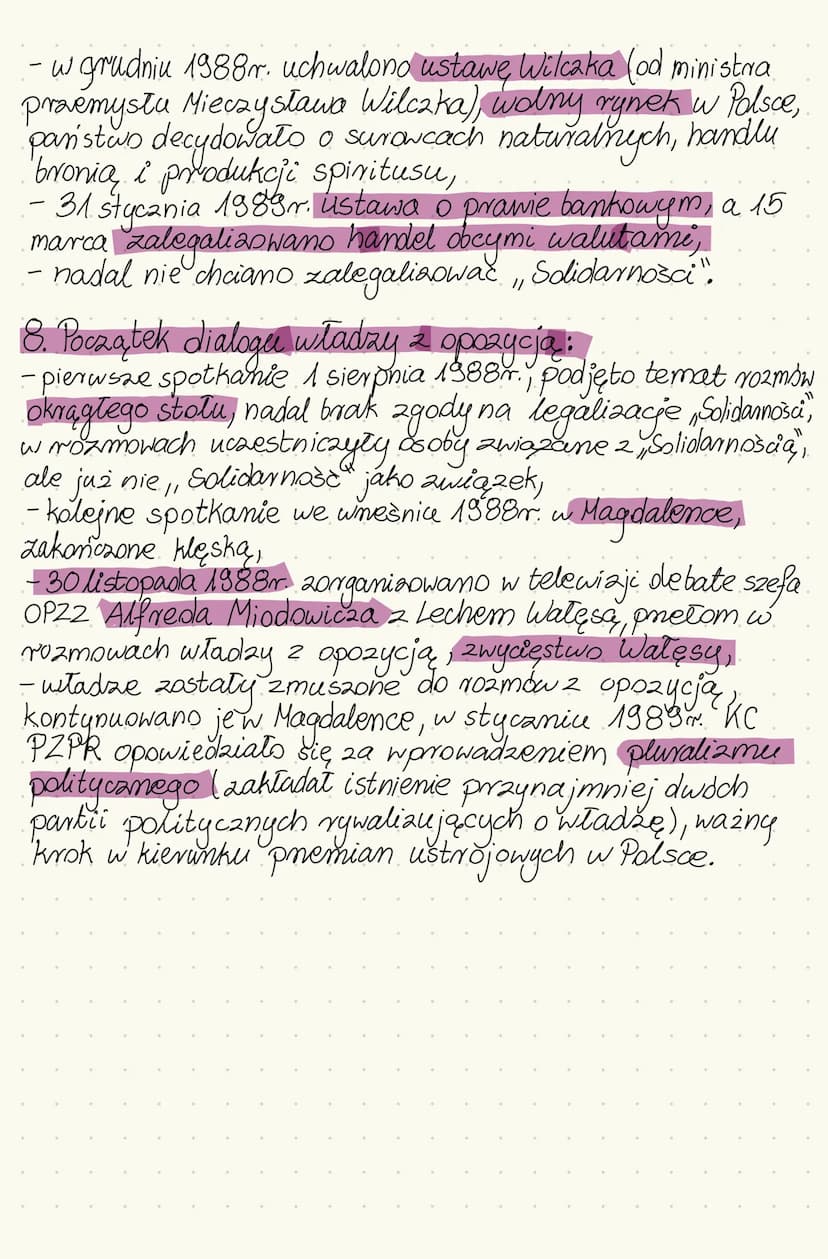 - w grudniu 1988r. uchwalono ustawę Wilczka (od ministra
przemysłu Mieczysława Wilczka), wolny rynek w Polsce,
państwo decydowało o surowcach naturalnych, handlu
bronią i produkcji spiritusu,
- 31 stycznia 1989r. ustawa o prawie bankowym, a 15
marca zalegalizowano handel obcymi walutami,
- nadal nie chciano zalegalizować „Solidarności".
8. Początek dialogu władzy z opozycją:
- pierwsze spotkanie 1 sierpnia 1988r., podjęto temat rozmów
okrągłego stołu, nadal brak zgody na legalizacje „Solidarności",
w rozmowach uczestniczyły osoby związane z „Solidarnością",
ale już nie „Solidarność" jako związek,
- kolejne spotkanie we wrześniu 1988r. w Magdalence,
zakończone klęską,
- 30 listopada 1988r. zorganizowano w telewizji debate szefa
OPZZ Alfreda Miodowicza z Lechem Wałęsą, przełom w
rozmowach władzy z opozycją, zwycięstwo Wałęsy,
- władze zostały zmuszone do rozmów z opozycją,
kontynuowano je w Magdalence, w styczniu 1989r. KC
PZPR opowiedziało się za wprowadzeniem pluralizmu
politycznego (zakładał istnienie przynajmniej dwóch
partii politycznych rywalizujących o władzę), ważny
krok w kierunku przemian ustrojowych w Polsce.